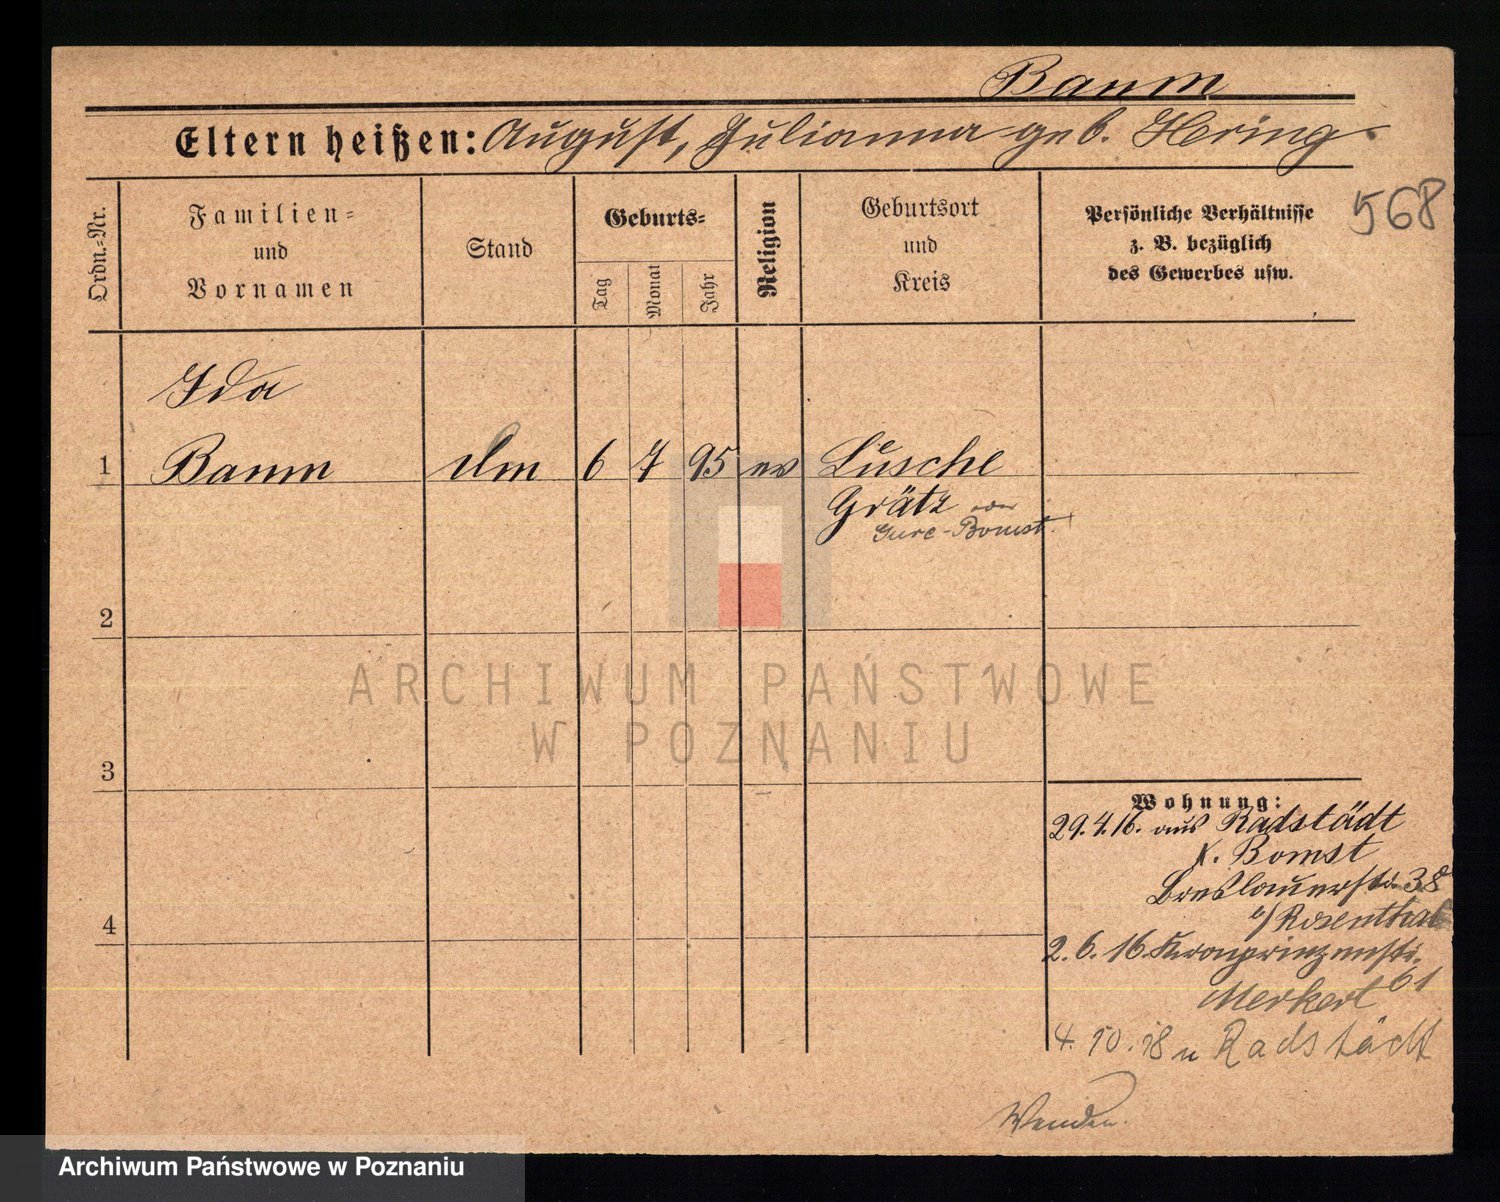 Baum
Eltern heißen: August, Julianna geb. Hering.
568
Ordn.-Nr.
Familien-
und
Vornamen
Stand
Geburts-
Tag
Monat
Jahr
Religion
Geburtsort
und
Kreis
Persönliche Verhältnisse
z. B. bezüglich
des Gewerbes usw.
Ida
1 Baum dm 6 7 95 ev Lusche
Grätz oder
-Bomst
2
ARCHIWUM PAŃSTWOWE
W POZNANIU
3
Wohnung:
29.4.16. aus Radstädt
K. Bomst
Breslauerstr. 38
b/ Rosenthal
4
2.6.16. Kronprinzenstr.
61
Merkert
4.10.18 n Radstädt
Wenden.
Archiwum Państwowe w Poznaniu